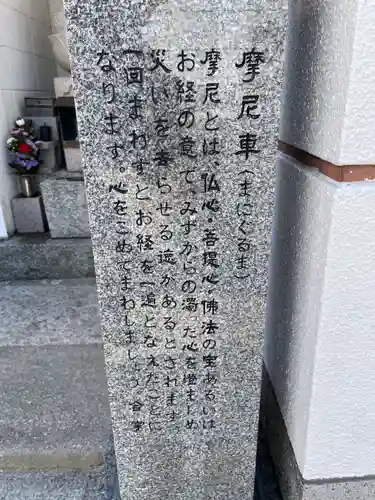 摩尼車(まにぐるま)
摩尼とは、仏心・菩提心・佛法の宝あるいは
お経の意て、みずからの濁った心を澄ましめ
災いを去らせる徳があるとされます
一回まわすとお経を一遍となえたことに
なります。心をこめてまわしましょう 合掌